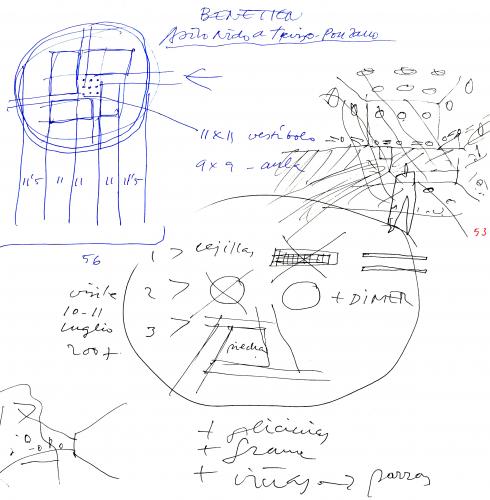 BENETTON
Asilo Nido a Treviso-Ponzano
11x11 vestibolo
9x9 - aula
11'5 11 11 11 11'5
56
53
1 > cejillas
visita 2 > + DIMER
10-11
luglio 3 >
200+
piedra
+ glicinias
+
+ viñas parras